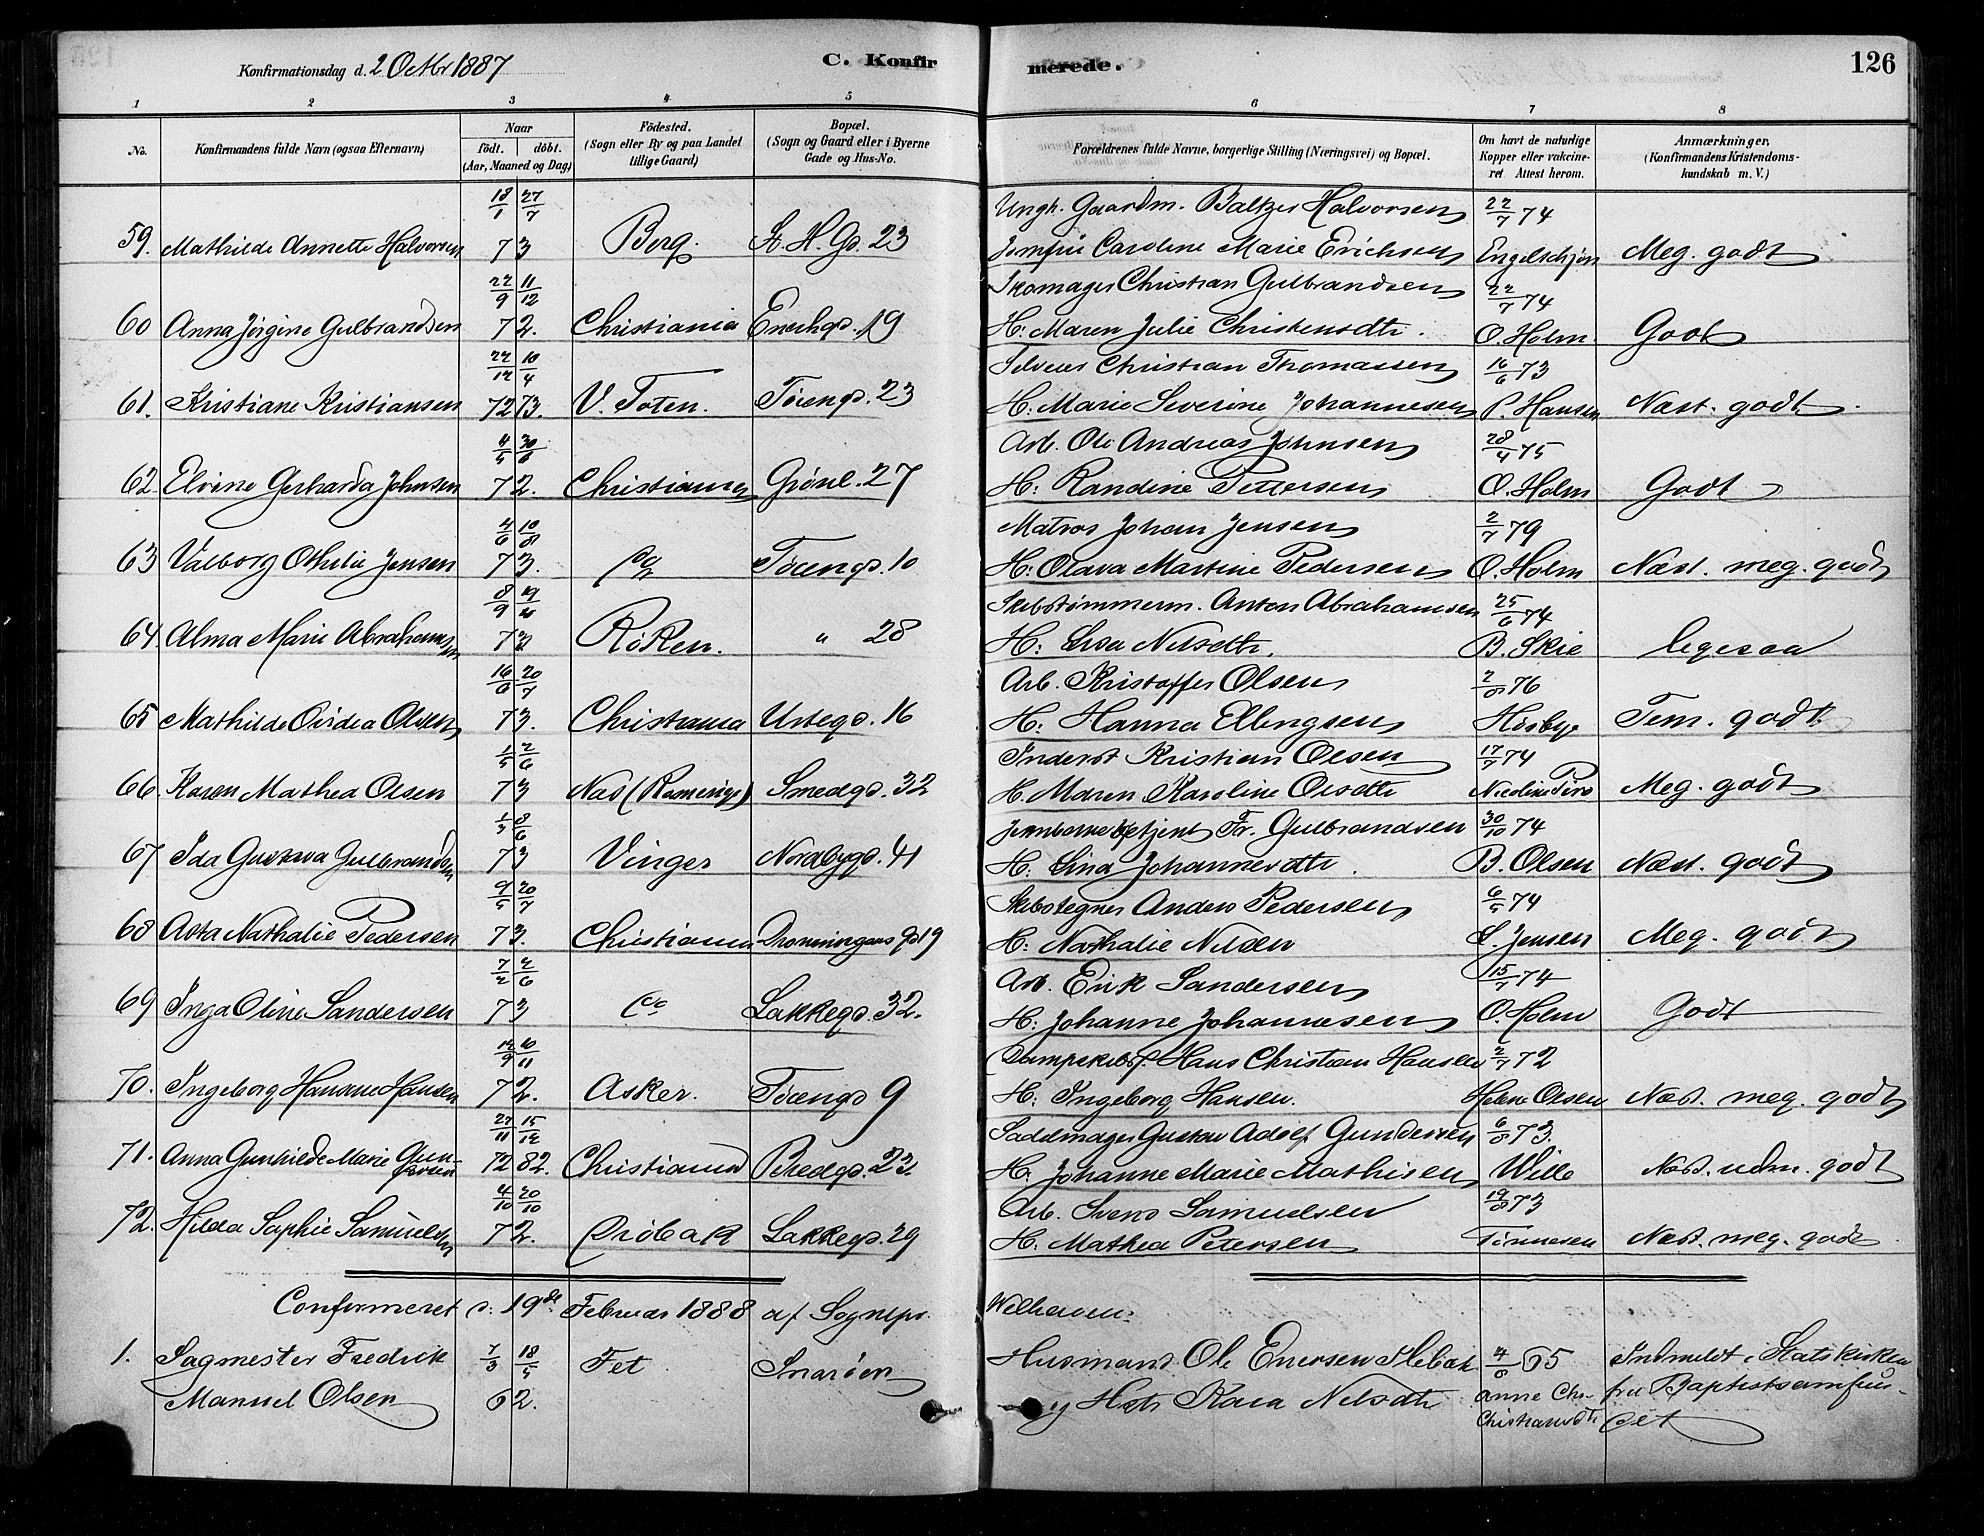 Konfirmationsdag d. 2 Octbr 1887 C. Konfirmerede. 126
1 2 3 4 5 6 7 8
No. Konfirmandens fulde Navn (ogsaa Efternavn) Naar født. døbt. (Aar, Maaned og Dag) Fødested. (Sogn eller By og paa Landet tillige Gaard) Bopæl. (Sogn og Gaard eller i Byerne Gade og Hus-No. Forældrenes fulde Navne, borgerlige Stilling (Næringsvei) og Bopæl. Om havt de naturlige Kopper eller vakcineret Attest herom. Anmærkninger. (Konfirmandens Kristendomskundskab m. V.)
18/1 27/7 Ungk. Gaardm. Baltzer Halvorsen 22/7 74
59. Mathilde Annette Halvorsen 73 Berg. St. H. Gd. 23 Jomfru Caroline Marie Erichsen Engelschjøn Meg. godt
22/9 11/12 Skomager Christian Gulbrandsen 22/7 74
60 Anna Jørgine Gulbrandsen 72. Christiania Enerhgd. 19 H: Maren Julie Christensdtr. O. Holm Godt
22/12 10/4 Christian Thomassen 16/6 73
61. Kristiane Kristiansen 72 73. V. Toten. Tøiengd. 23 H: Marie Severine Johannesen P. Hansen Næst. godt
4/5 30/6 Arb. Ole Andreas Johnsen 28/4 75
62. Elvine Gerharda Johnsen 72. Christiania Grønl. 27 H: Randine Pettersen O. Holm Godt
4/6 10/8 Matros Johan Jensen 2/7 79
63 Valborg Othilie Jensen 73. do Tøiengd. 10 H: Olava Martine Pedersen O. Holm Næst. meg. godt
8/9 Skibstømmerm. Anton Abrahamsen 25/6 74
64. Alma Marie Abrahamsen 72 Røken. " 28 H: Lisa Nilsdtr. B. Skie ligesaa
16/6 20/7 Arb. Kristoffer Olsen 2/8 76
65 Mathilde Ovidea Olsen 73. Christiania Urtegd. 16 H: Hanna Ellingsen Høsbye Tem. godt
1/5 2/6 Inderst Kristian Olsen 17/7 74
66. Karen Mathea Olsen 73 Næs (Romerige) Smedgd. 32 H. Maren Karoline Olsdtr Nicoline Meg. godt
1/3 8/6 Jernbanebetjent Fr. Gulbrandsen 30/10 74
67 Ida Gustava Gulbrandsen 73 Vinger Nordbygd. 41 H: Lina Johannesdtr. B. Olsen Næst. godt
9/5 20/7 Skibstegner Anders Pedersen 6/5 74
68 Asta Nathalie Pedersen 73. Christiania Dronningens Gd 19 H: Nathalie Nilsen L. Jensen Meg. godt
7/2 2/6 Arb. Erik Sandersen 15/7 74
69 Inga Oline Sandersen 73 do Lakkegd. 32. H: Johanne Johannesen O. Holm Godt
12/9 10/11 Dampskibsf. Hans Christian Hansen 2/7 72
70. Ingeborg Hansine Hansen 72. Asker. Tøiengd 9 H: Ingeborg Hansen. Helene Olsen Næst. meg. godt
27/11 15/12 Sadelmager Gustav Adolf Gundersen 6/8 73.
71. Anna Gunhilde Marie Gundersen 72 82. Christiania Bredgd. 23. H. Johanne Marie Mathisen Wille Næst. udm. godt
4/10 20/10 Arb. Svend Samuelsen 19/8 73
72. Hilda Sophie Samuelsen 72. Drøbak Lakkegd. 29 H: Mathea Petersen Tønnesen Næst. meg. godt
Confirmeret d: 19de Februar 1888 af Sognepr. Welhaven:
1. Sagmester Fredrik 7/3 18/5 Fet Snarøen Husmand Ole Enersen 4/8 65 Indmeldt i Statskirken
Manuel Olsen 62. og Hstr Kaia Nilsdtr Anne Chr. fra Baptistsamfun-
Christiansdtr det